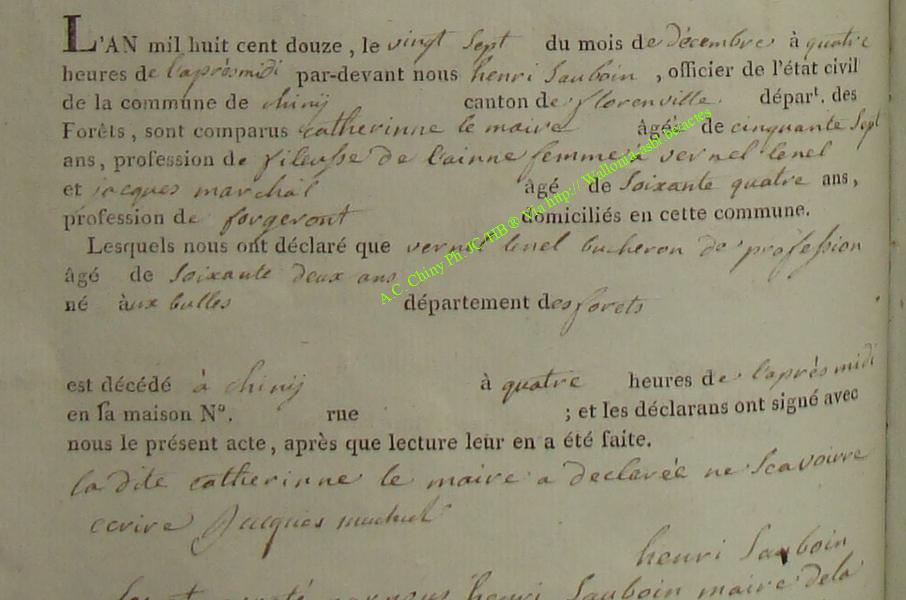 L'AN mil huit cent douze, le vingt sept du mois de décembre à quatre
heures de l'aprèsmidi par-devant nous henri Sauboin, officier de l'état civil
de la commune de chinij canton de florenville départ. des
Forêts, sont comparus catherinne le maire âgé de cinquante sept
ans, profession de fileusse de lainne femme a vernel lenel
et jacques marchal âgé de soixante quatre ans,
profession de forgeront domiciliés en cette commune.
Lesquels nous ont déclaré que vernel lenel bucheron de profession
âgé de soixante deux ans
né àux bulles département des forets
est décédé à chinij à quatre heures de l'après midi
en sa maison N°. rue ; et les déclarans ont signé avec
nous le présent acte, après que lecture leur en a été faite.
la dite catherinne le maire a declarée ne scavoirre
ecrire Jacques marchal
henri Sauboin
par nous henri Sauboin maire dela
A.C. Chiny Ph. JC/HB ® Via http:// Wallonia-asbl.be:actes